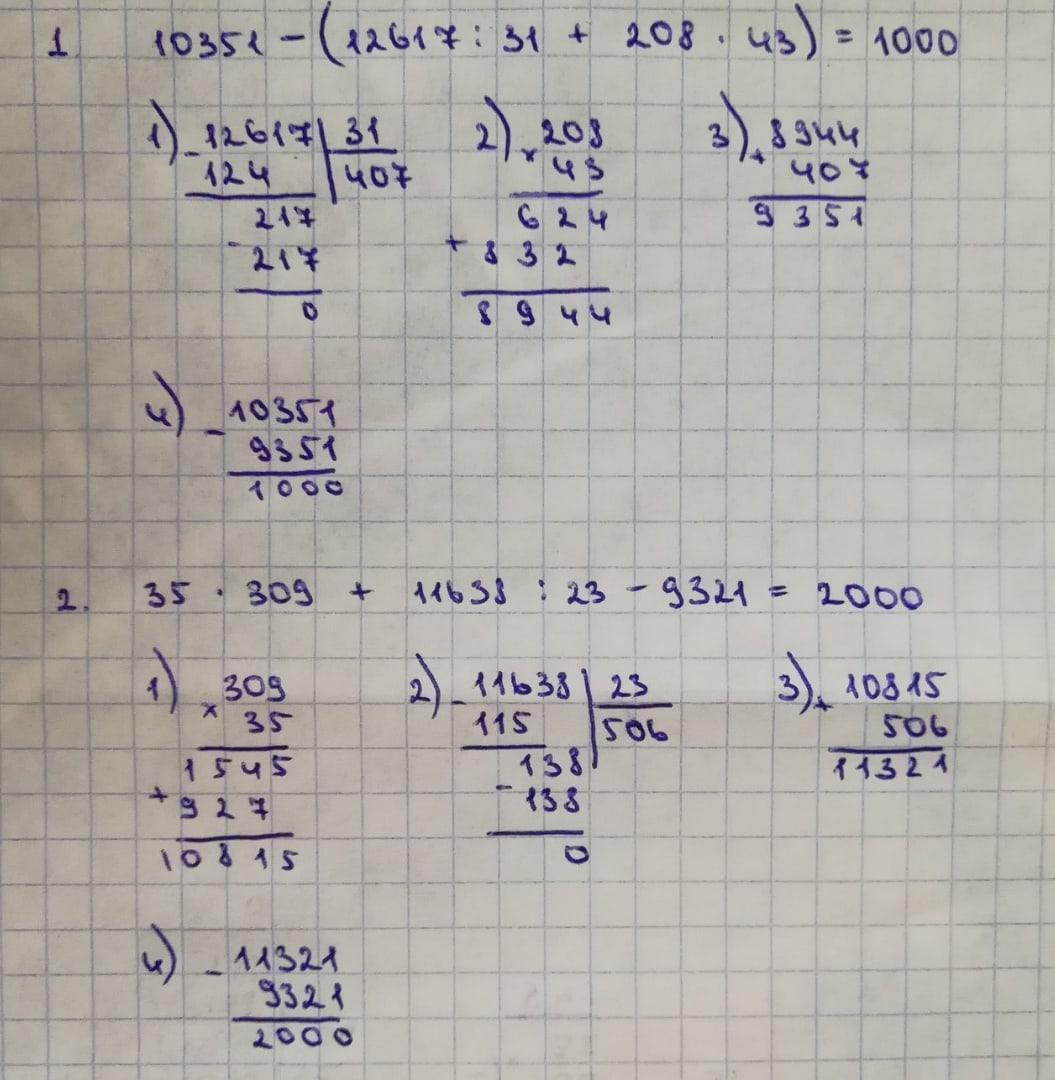 1. 10351 - (12617 : 31 + 208 · 43) = 1000
1) - 12617 | 31
124 | 407
217
- 217
0
2) × 208
43
624
+ 832
8944
3) + 8944
407
9351
4) - 10351
9351
1000
2. 35 · 309 + 11638 : 23 - 9321 = 2000
1) × 309
35
1545
+ 927
10815
2) - 11638 | 23
115 | 506
138
- 138
0
3) + 10815
506
11321
4) - 11321
9321
2000